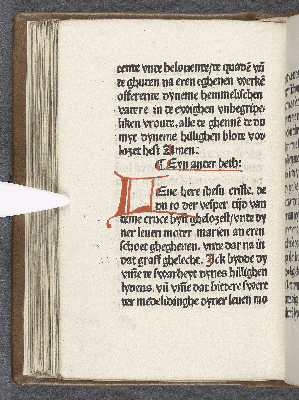 cente vnde belonente/te quadē vñ
te ghuten na eren eyghen werkē
offerente dyneme hemmelischen
vadere in de ewighen vnbegripe-
liken vroude, alle de ghenne de du
myt dyneme hillighen blode vor
lozet hest Amen:
¶ Eyn ander beth:
LEue here ihesu criste, de
du to der vesper tijd van
deme cruce byst ghelozest/vnde dy
ner leuen moder marien an eren
schoet ghegheuen. vnde dar na in
dat graff ghelecht. Ick bydde dy
vm̄e de swarheyt dynes hillighen
lydens. vñ vm̄e dat bittere swert
der medelidinghe dyner leuen mo